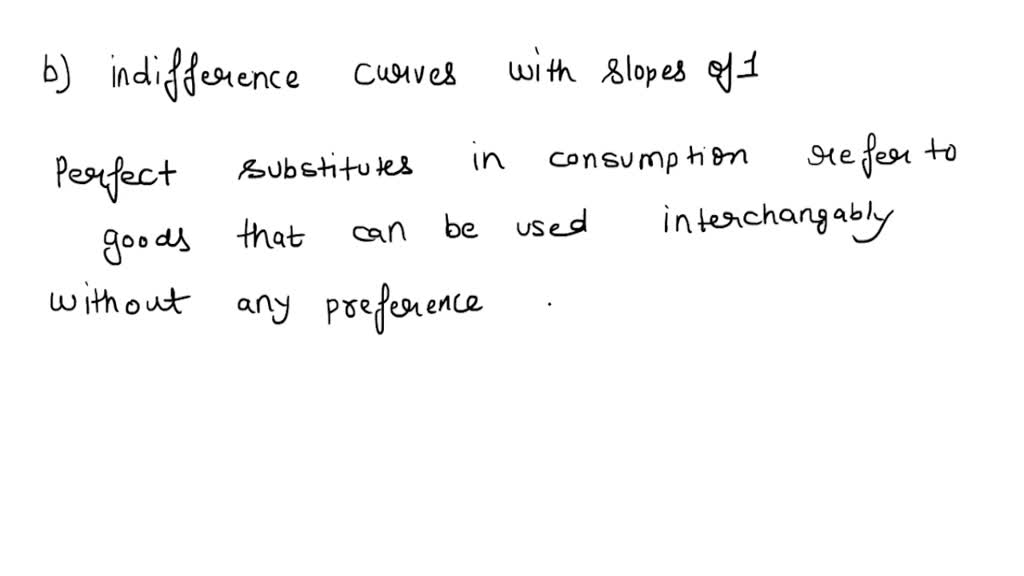 b) indifference curves with slopes of 1
Perfect substitutes in consumption refer to
goods that can be used interchangably
without any preference .